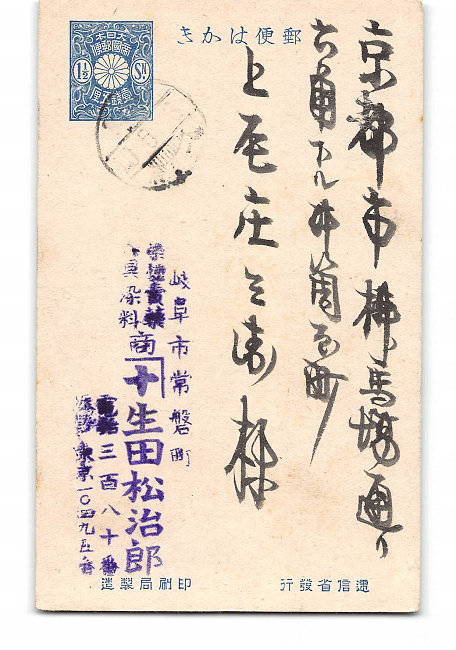 郵便はかき
大日本
帝國郵便
1½
Sn.
壹錢五厘
京都市柳馬場通り
六角下ル井筒屋町
上尾庄兵衛様
岐阜市常磐町
染料
商
生田松治郎
電話三百八十番
東京一〇四九五番
遞信省發行
印刷局製造